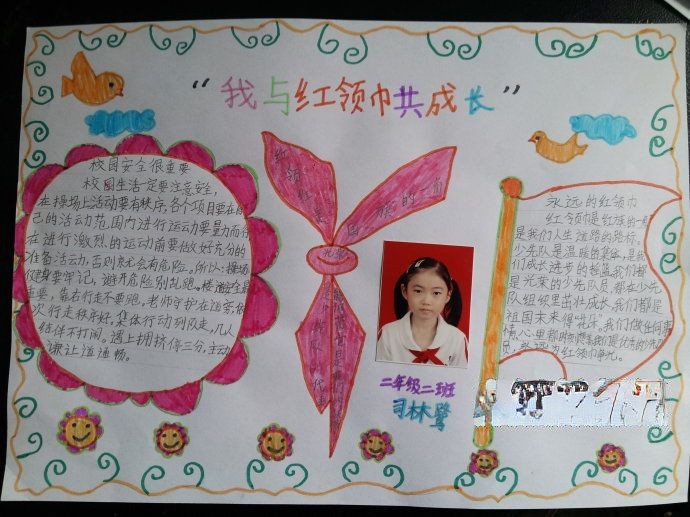 “我与红领巾共成长”
校园安全很重要
校园生活一定要注意安全,
在操场上活动要有秩序,各个项目要在自
己的活动范围内进行运动要量力而行
在进行激烈的运动前要做好充分的
准备活动,否则就会有危险。所以:操场
健身要牢记,避开危险别乱跑。楼道安全是
重要,靠右行走不要跑,老师守护在这旁,依
次行走秩序好,集体行动列队走,几人
结伴不打闹。遇上拥挤停三分,主动
谦让道通畅。
红领巾是
国旗的一角
二年级二班
司林鹭
永远的红领巾
红领巾是红旗的一角
是我们人生道路的航标。
少先队是温暖的集体,是我
们成长进步的摇篮我们都
是光荣的少先队员,都在少先
队组织里茁壮成长,我们都是
祖国未来得“花朵”。我们做任何事
情心里都时刻想着我们是优秀的少先队
员,永远为红领巾争光。